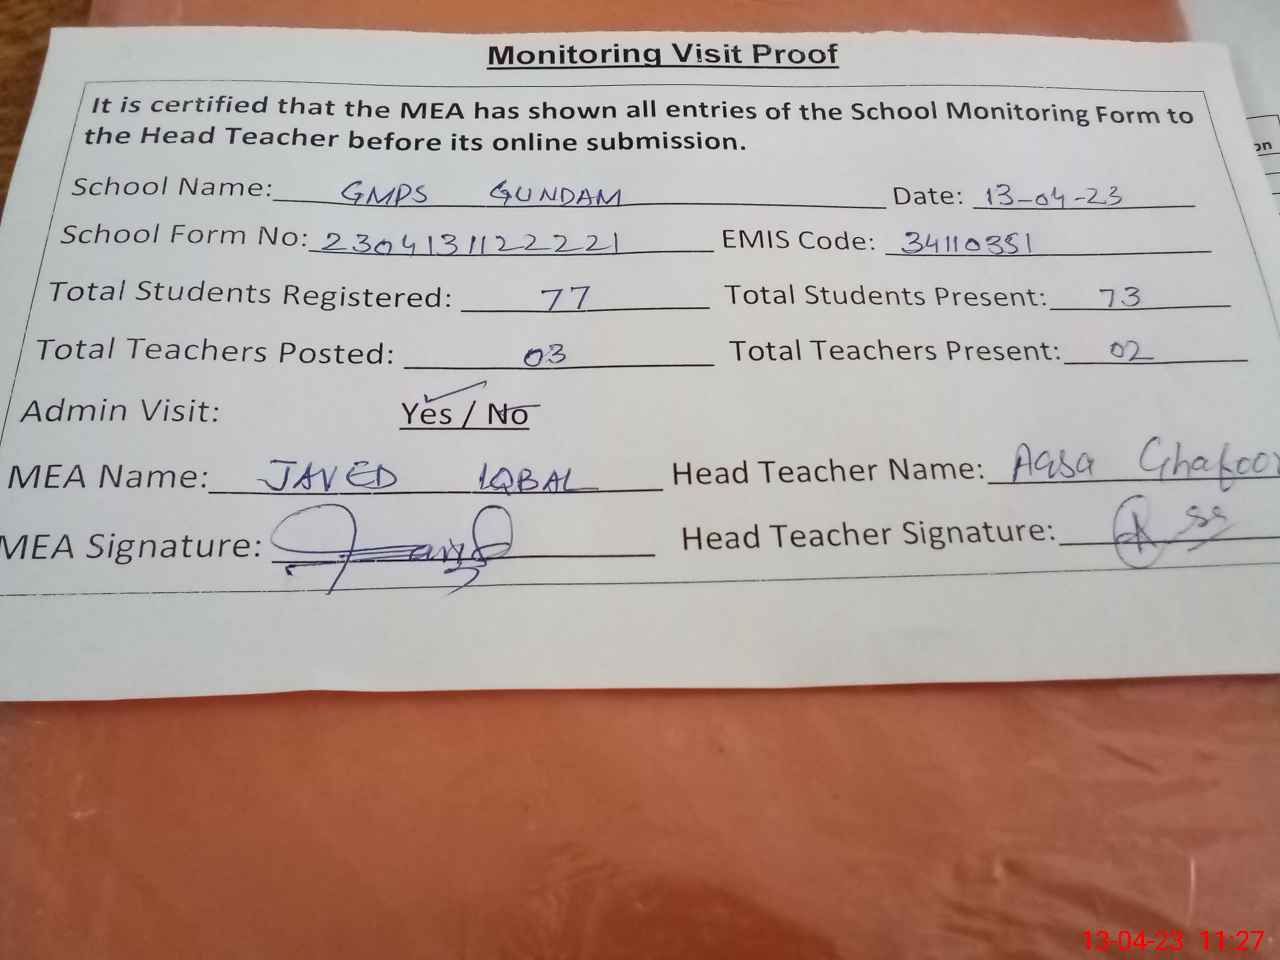 Monitoring Visit Proof
It is certified that the MEA has shown all entries of the School Monitoring Form to
the Head Teacher before its online submission.
School Name: GMPS GUNDAM Date: 13-04-23
School Form No: 2304131122221 EMIS Code: 34110351
Total Students Registered: 77 Total Students Present: 73
Total Teachers Posted: 03 Total Teachers Present: 02
Admin Visit: Yes / No
MEA Name: JAVED IQBAL Head Teacher Name: Aqsa Ghafoor
MEA Signature: Head Teacher Signature:
13-04-23 11:27